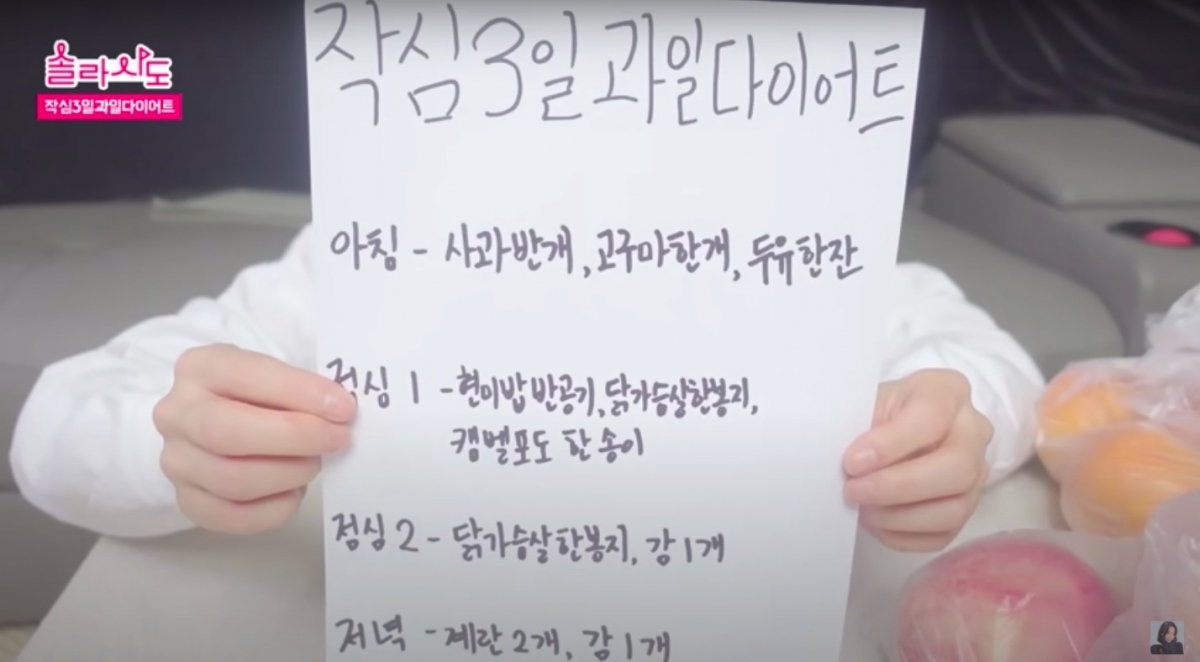 솔라시도
작심3일과일다이어트
작심3일 과일다이어트
아침 - 사과반개, 고구마한개, 두유한잔
점심 1 - 현미밥 반공기, 닭가슴살한봉지,
캠벨포도 한 송이
점심 2 - 닭가슴살한봉지, 감 1개
저녁 - 계란 2개, 감 1개